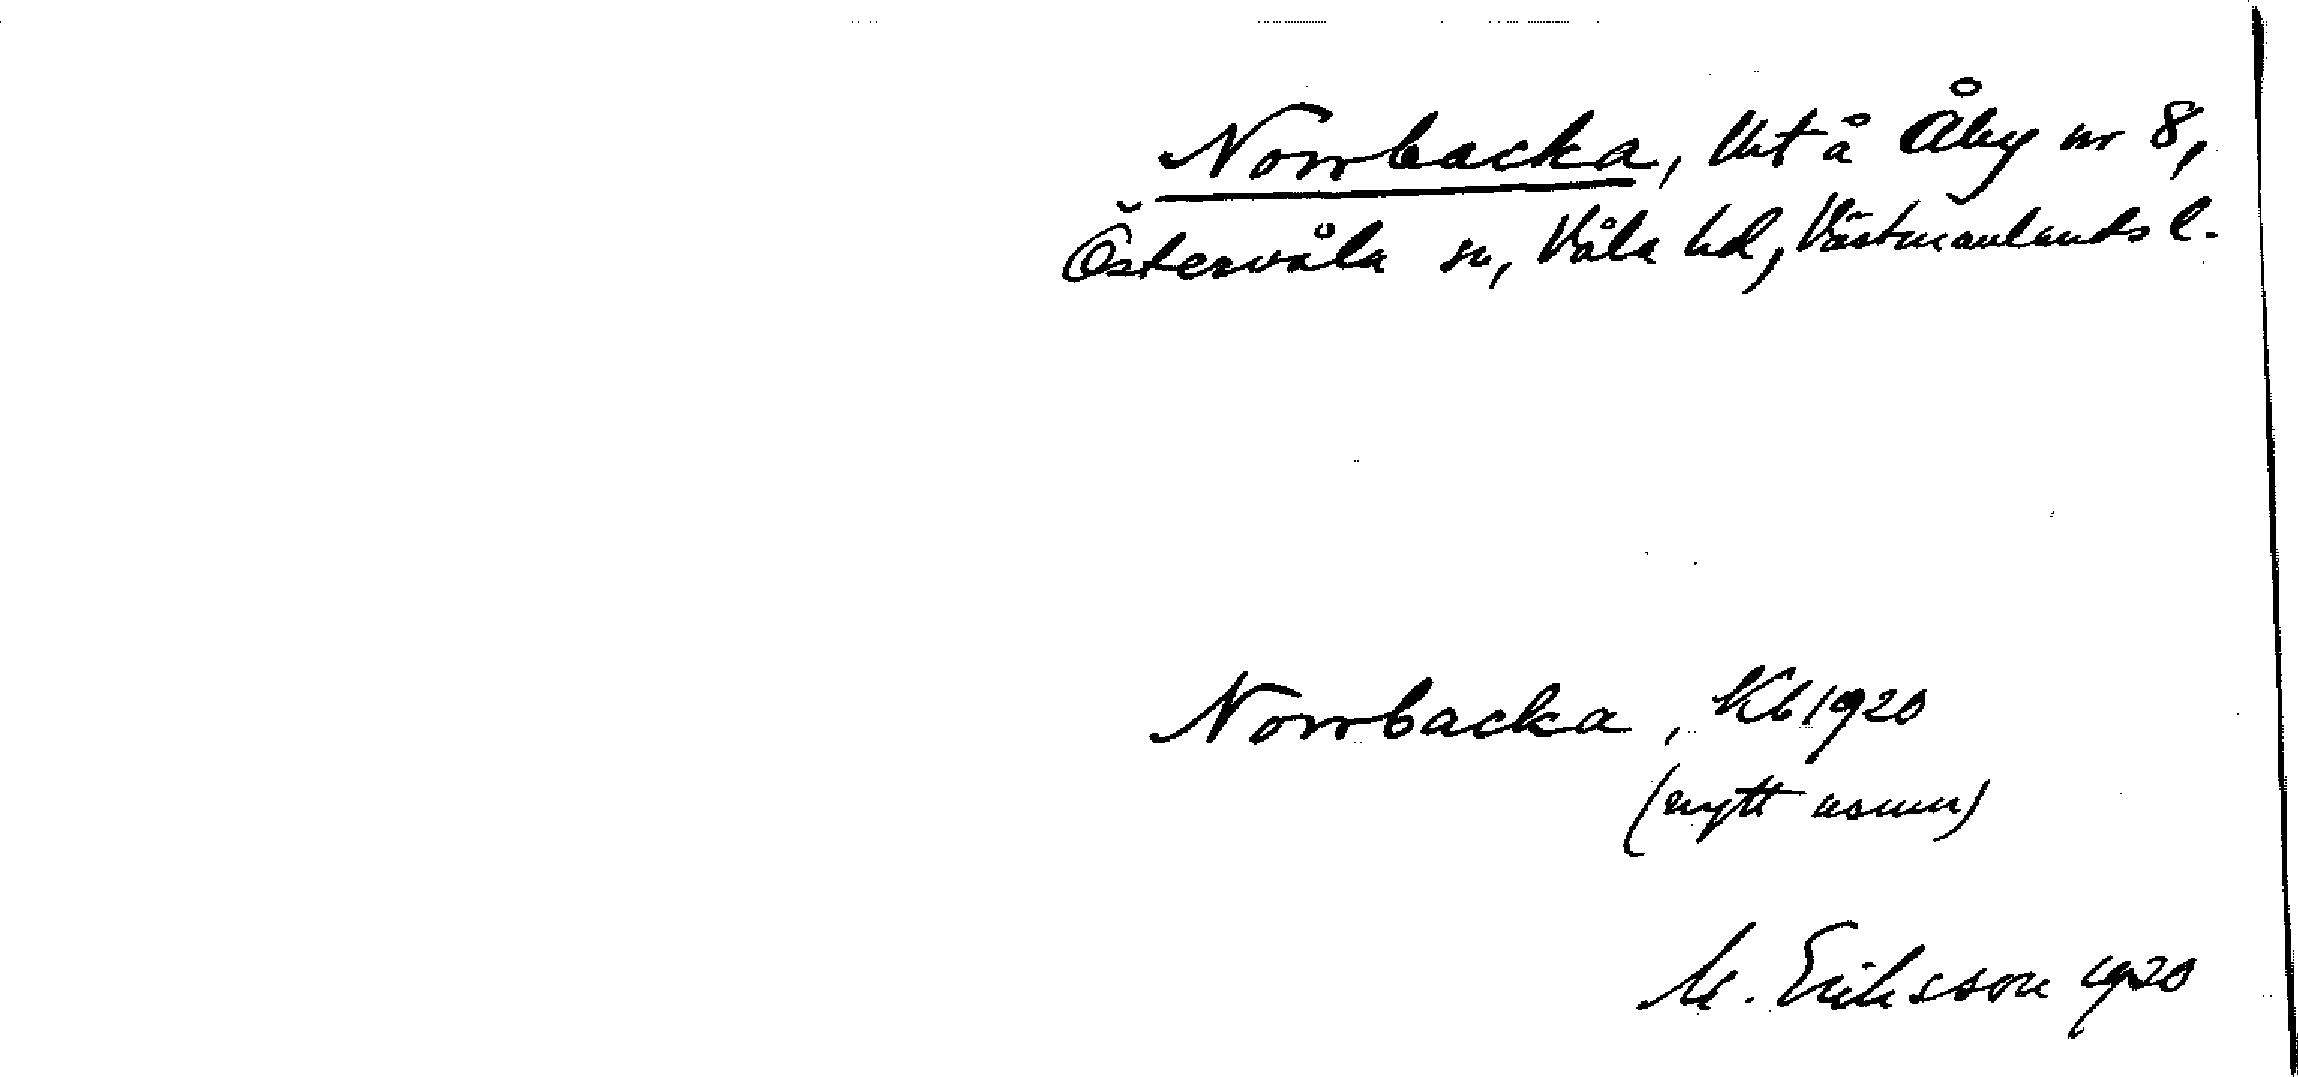 Norrbacka, lht å Åby nr 8,
Östervåla sn, Våla hd, Västmanlands l.
Norrbacka, Kb 1920
(nytt namn)
M. Eriksson 1920